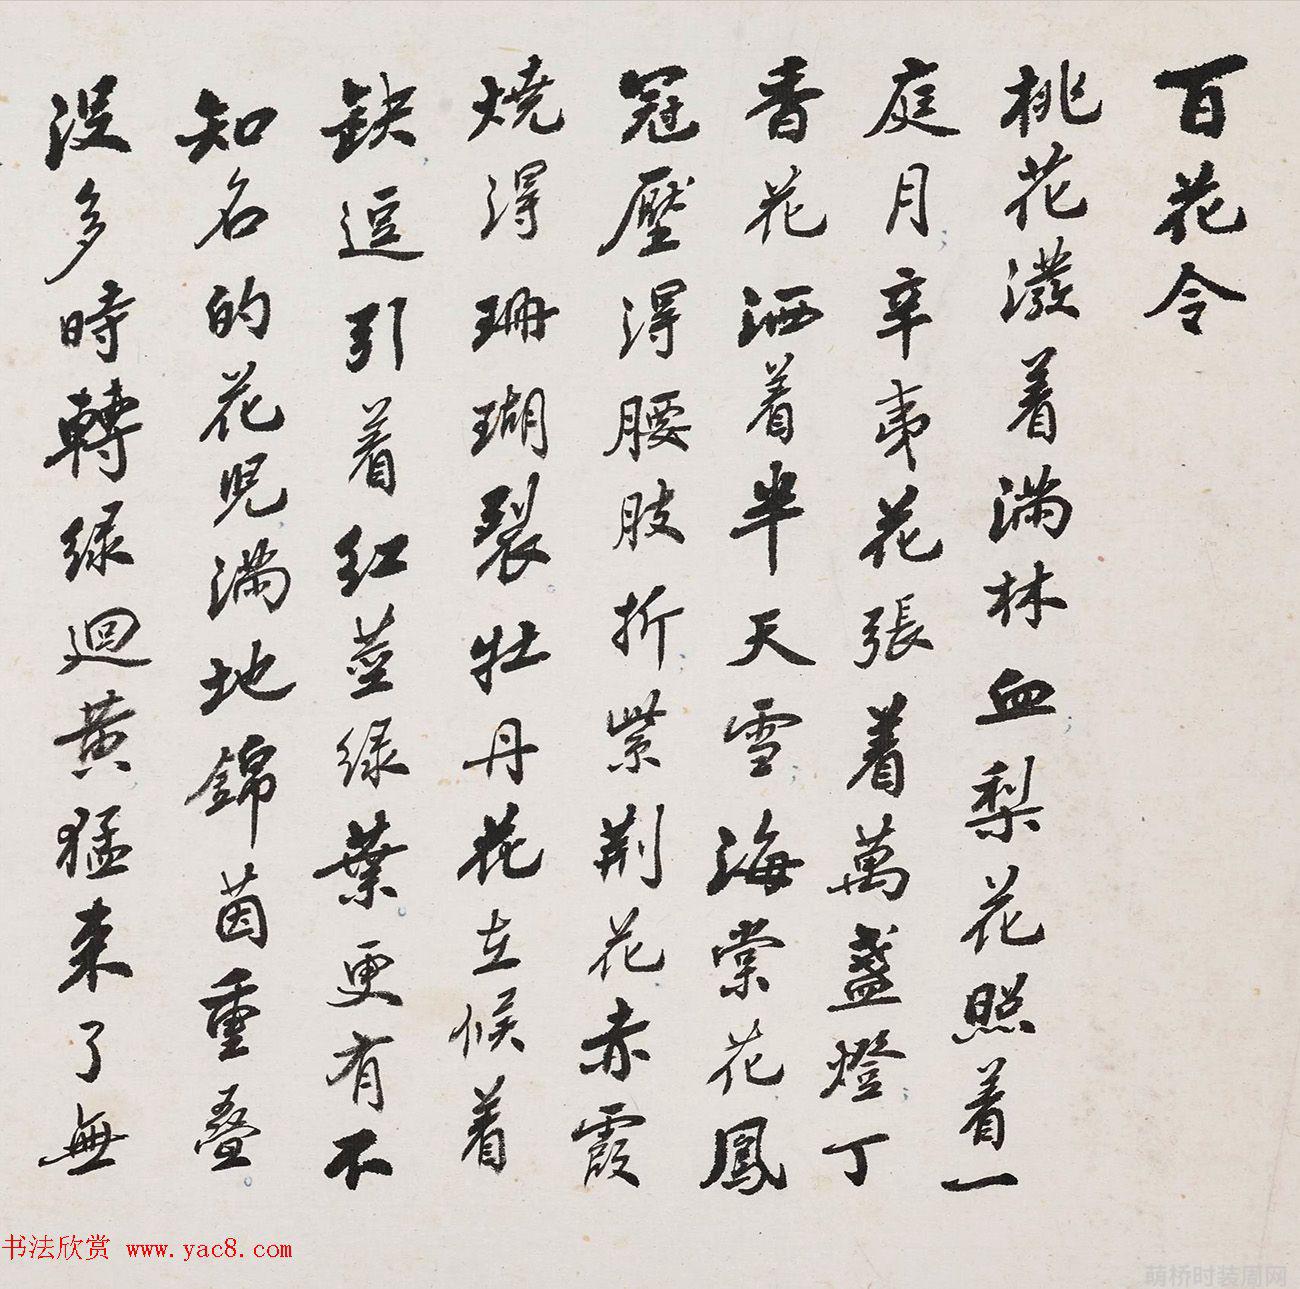 百花令
桃花潑着滿林血梨花照着一
庭月辛夷花張着萬盞燈丁
香花洒着半天雪海棠花鳳
冠壓得腰肢折紫荆花赤霞
燒得珊瑚裂牡丹花立候着
缺逗引着紅莖綠葉更有不
知名的花兒滿地錦茵重疊
沒多時轉綠迴黃猛来了無
书法欣赏 www.yac8.com
萌桥时装周网